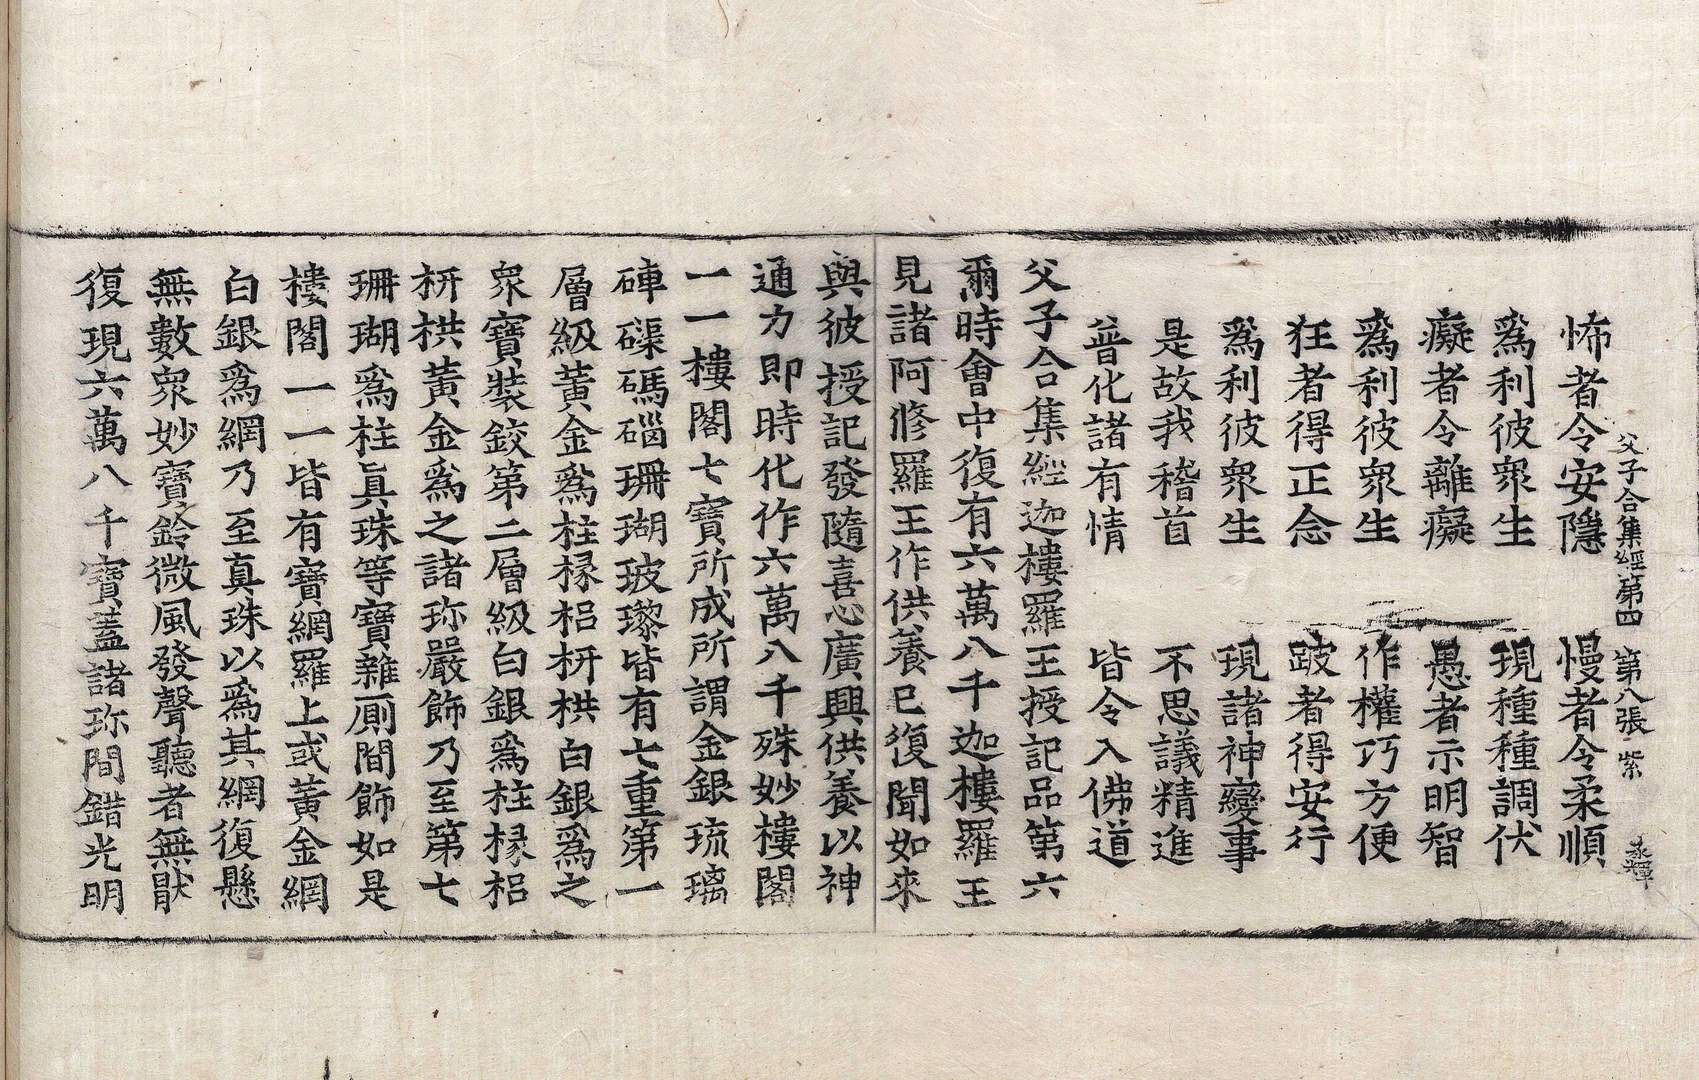 父子合集經第四 第八張 紫
怖者令安隱 慢者令柔順
爲利彼衆生 現種種調伏
癡者令離癡 愚者示明智
爲利彼衆生 作權巧方便
狂者得正念 跛者得安行
爲利彼衆生 現諸神變事
是故我稽首 不思議精進
普化諸有情 皆令入佛道
父子合集經迦樓羅王授記品第六
爾時會中復有六萬八千迦樓羅王
見諸阿修羅王作供養已復聞如來
與彼授記發隨喜心廣興供養以神
通力即時化作六萬八千殊妙樓閣
一一樓閣七寶所成所謂金銀琉璃
硨磲碼碯珊瑚玻瓈皆有七重第一
層級黄金爲柱椽梠枅栱白銀爲之
衆寶裝鉸第二層級白銀爲柱椽梠
枅栱黄金爲之諸珎嚴飾乃至第七
珊瑚爲柱眞珠等寶雜厠間飾如是
樓閣一一皆有寶網羅上或黄金網
白銀爲網乃至真珠以爲其網復懸
無數衆妙寶鈴微風發聲聽者無猒
復現六萬八千寶盖諸珎間錯光明